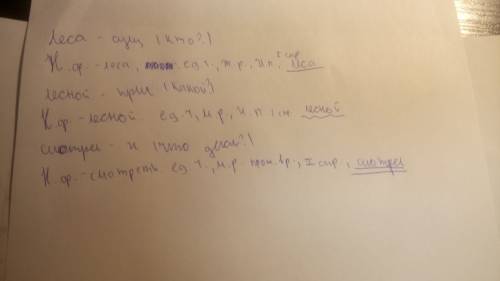 Леса - сущ (кто?)
Н.ф. - леса, ед.ч., ж.р., И.п, I скл леса
лесной - прил (какой?)
Н.ф. - лесной ед.ч, м.р, И.п лесной
смотрел - (что делал?)
Н.ф. - смотреть ед.ч., м.р. прош.вр., II спр., смотрел